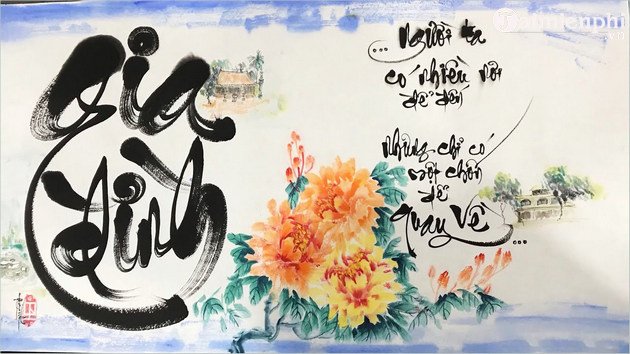 Gia
Đình
... Người ta
có nhiều nơi
để đến
nhưng chỉ có
một chốn
để
quay về ...